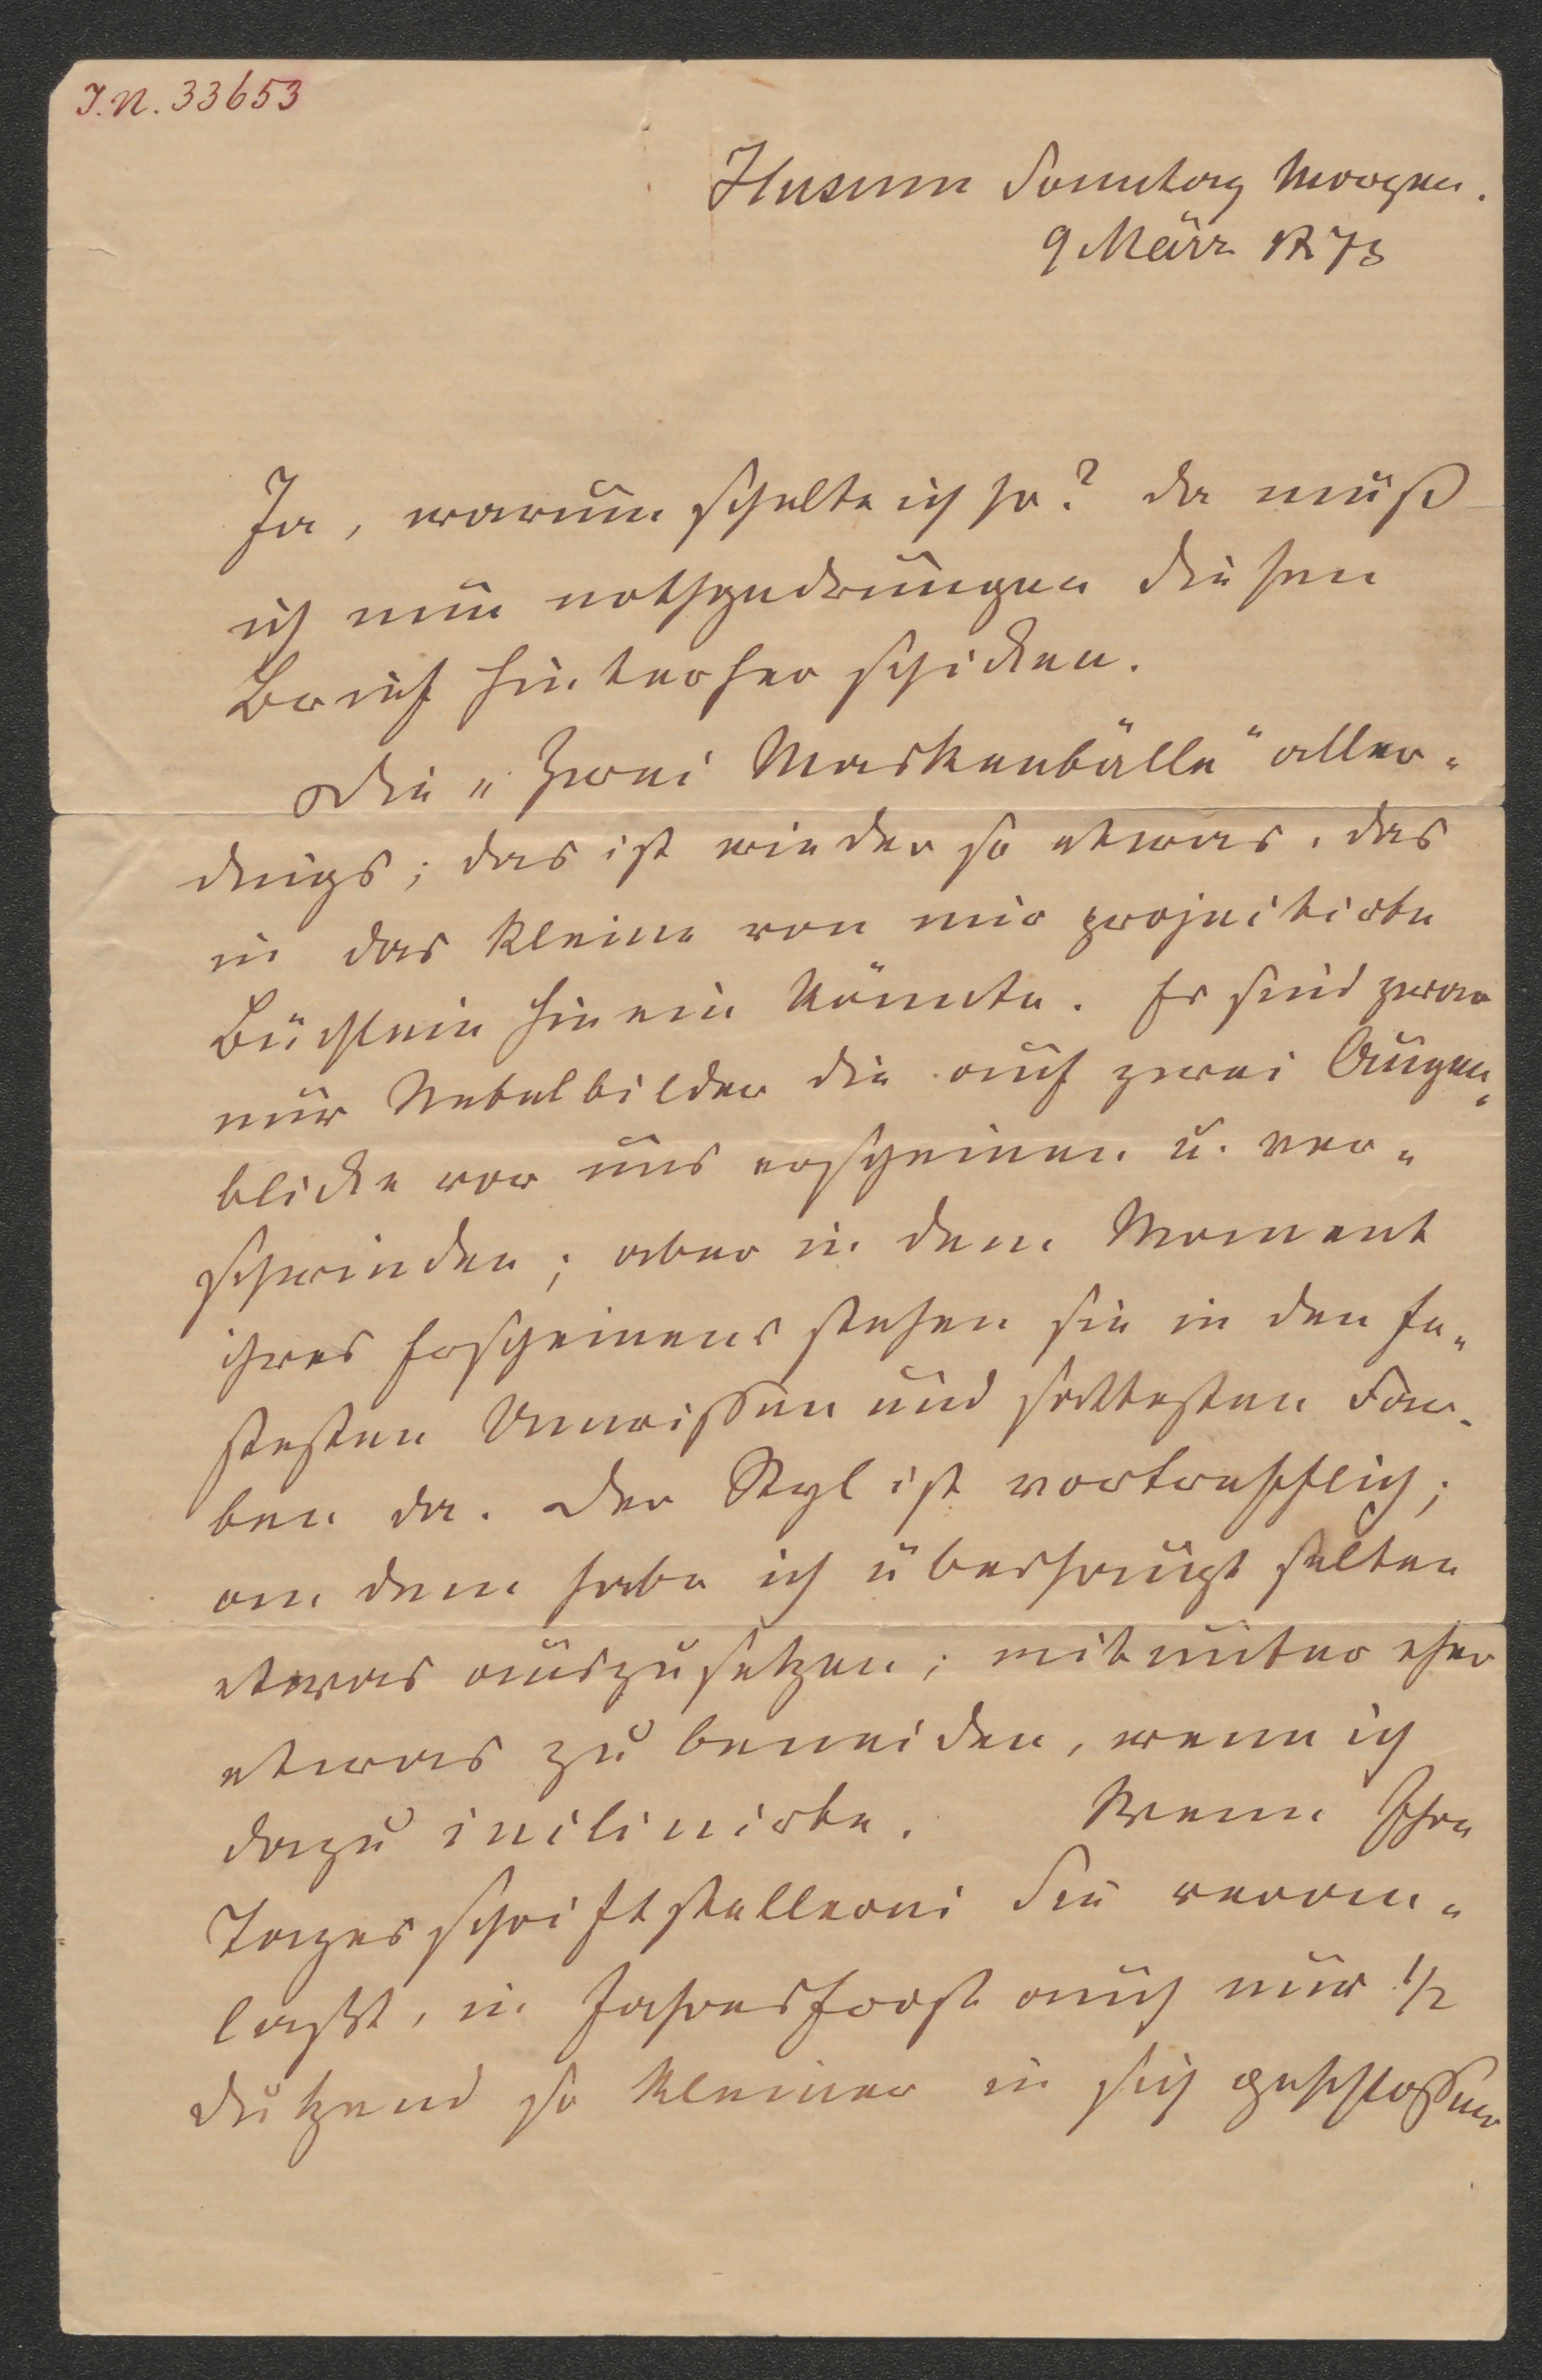 I.N. 33653
Husum Sonntag Morgen.
9 März 1873
Ja, warum schelte ich so? Da muß
ich nun nothgedrungen diesen
Brief hinterher schicken.
Die „Zwei Maskenbälle“ aller-
dings; das ist wieder so etwas, das
in das kleine von mir projectirte
Büchlein hinein könnte. Es sind zwar
nur Nebelbilder die auf zwei Augen-
blicke vor uns erscheinen u. ver-
schwinden; aber in dem Moment
ihres Erscheinens stehen sie in den fe-
stesten Umrissen und sattesten Far-
ben da. Der Styl ist vortrefflich;
an dem habe ich überhaupt selten
etwas auszusetzen; mitunter eher
etwas zu beneiden, wenn ich
dazu inclinirte. Wenn Ihre
Tagesschriftstellerei Sie veran-
laßt, in Jahresfrist auch nur 1/2
Dutzend so kleiner in sich geschlossener